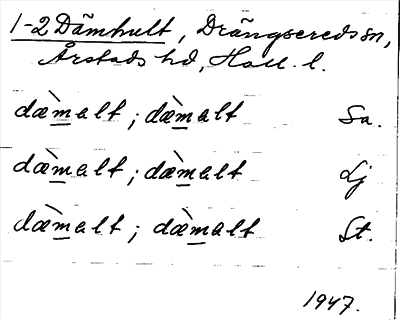 1-2 Dämhult, Drängsereds sn,
Årstads hd, Hall. l.
dæ̀m̲alt ; dæ̀m̲alt Sa.
dæ̀m̲alt ; dæ̀m̲alt Lj
dæ̀m̲alt ; dæ̀m̲alt St.
1947.